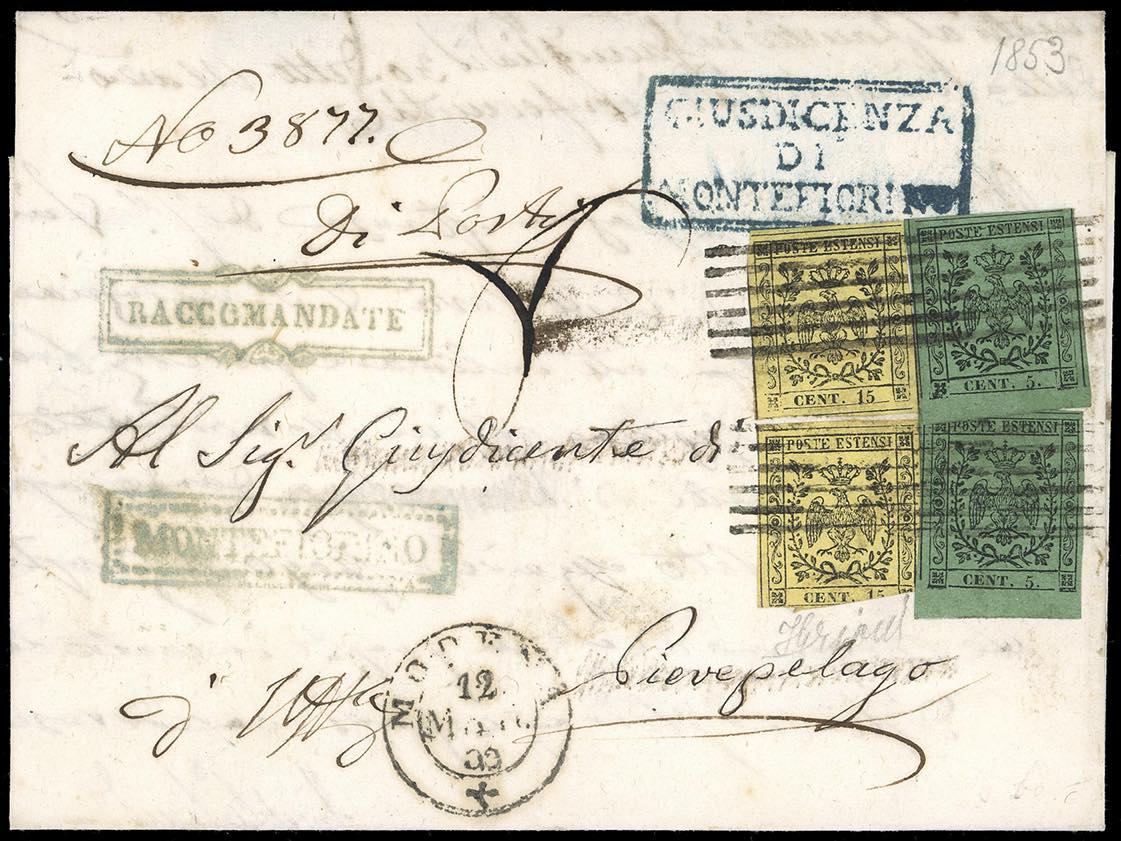 1853
No 3877.
GIUSDICENZA
DI
MONTEFIORINO
Di
RACCOMANDATE
POSTE ESTENSI
CENT. 15
POSTE ESTENSI
CENT. 5.
Al Sigr. Giusdicente di
POSTE ESTENSI
CENT. 15
POSTE ESTENSI
CENT. 5.
MONTEFIORINO
Pievepelago
MODENA
12
MAR